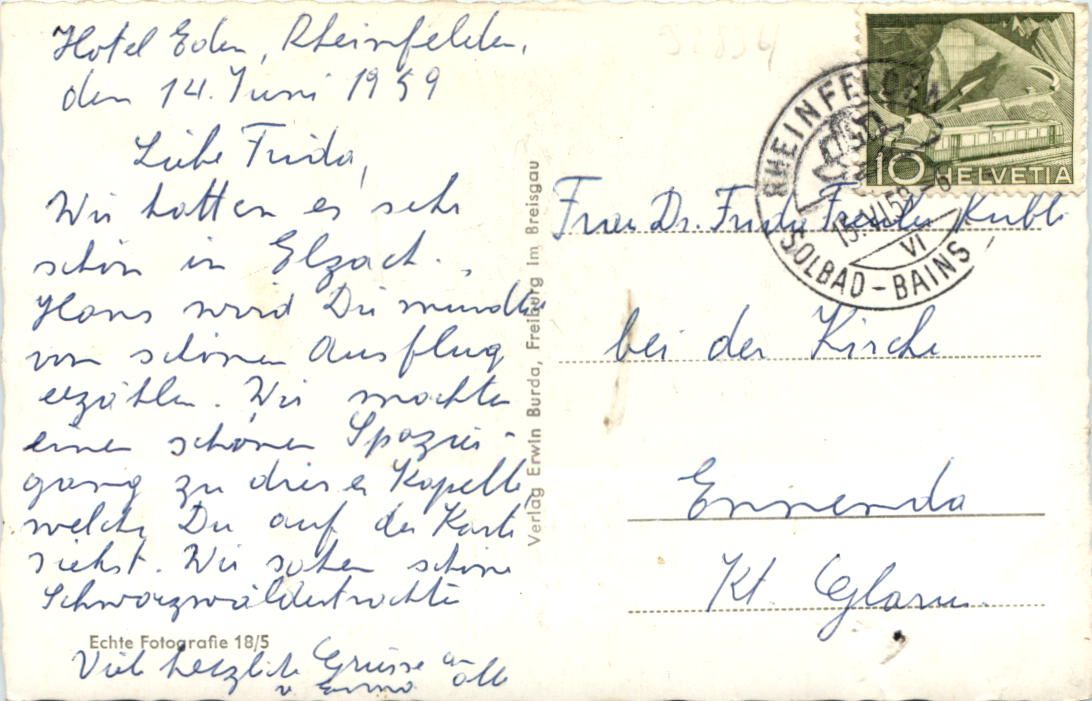 Hotel Eden, Rheinfelden,
den 14. Juni 1959
Liebe Frida,
Wir hatten es sehr
schön in Elzach.
Hans wird Dir mündlich
vom schönen Ausflug
erzählen. Wir machten
einen schönen Spazier-
gang zu dieser Kapelle
welche Du auf der Karte
siehst. Wir sahen schöne
Schwarzwäldertrachten
Echte Fotografie 18/5
Viele herzliche Grüsse an alle
v. Emma
Verlag Erwin Burda, Freiburg im Breisgau
32834
RHEINFELDEN
SOLBAD-BAINS
VI
10 HELVETIA
Frau Dr. Frida Kubli
bei der Kirche
Ennenda
Kt. Glarus.